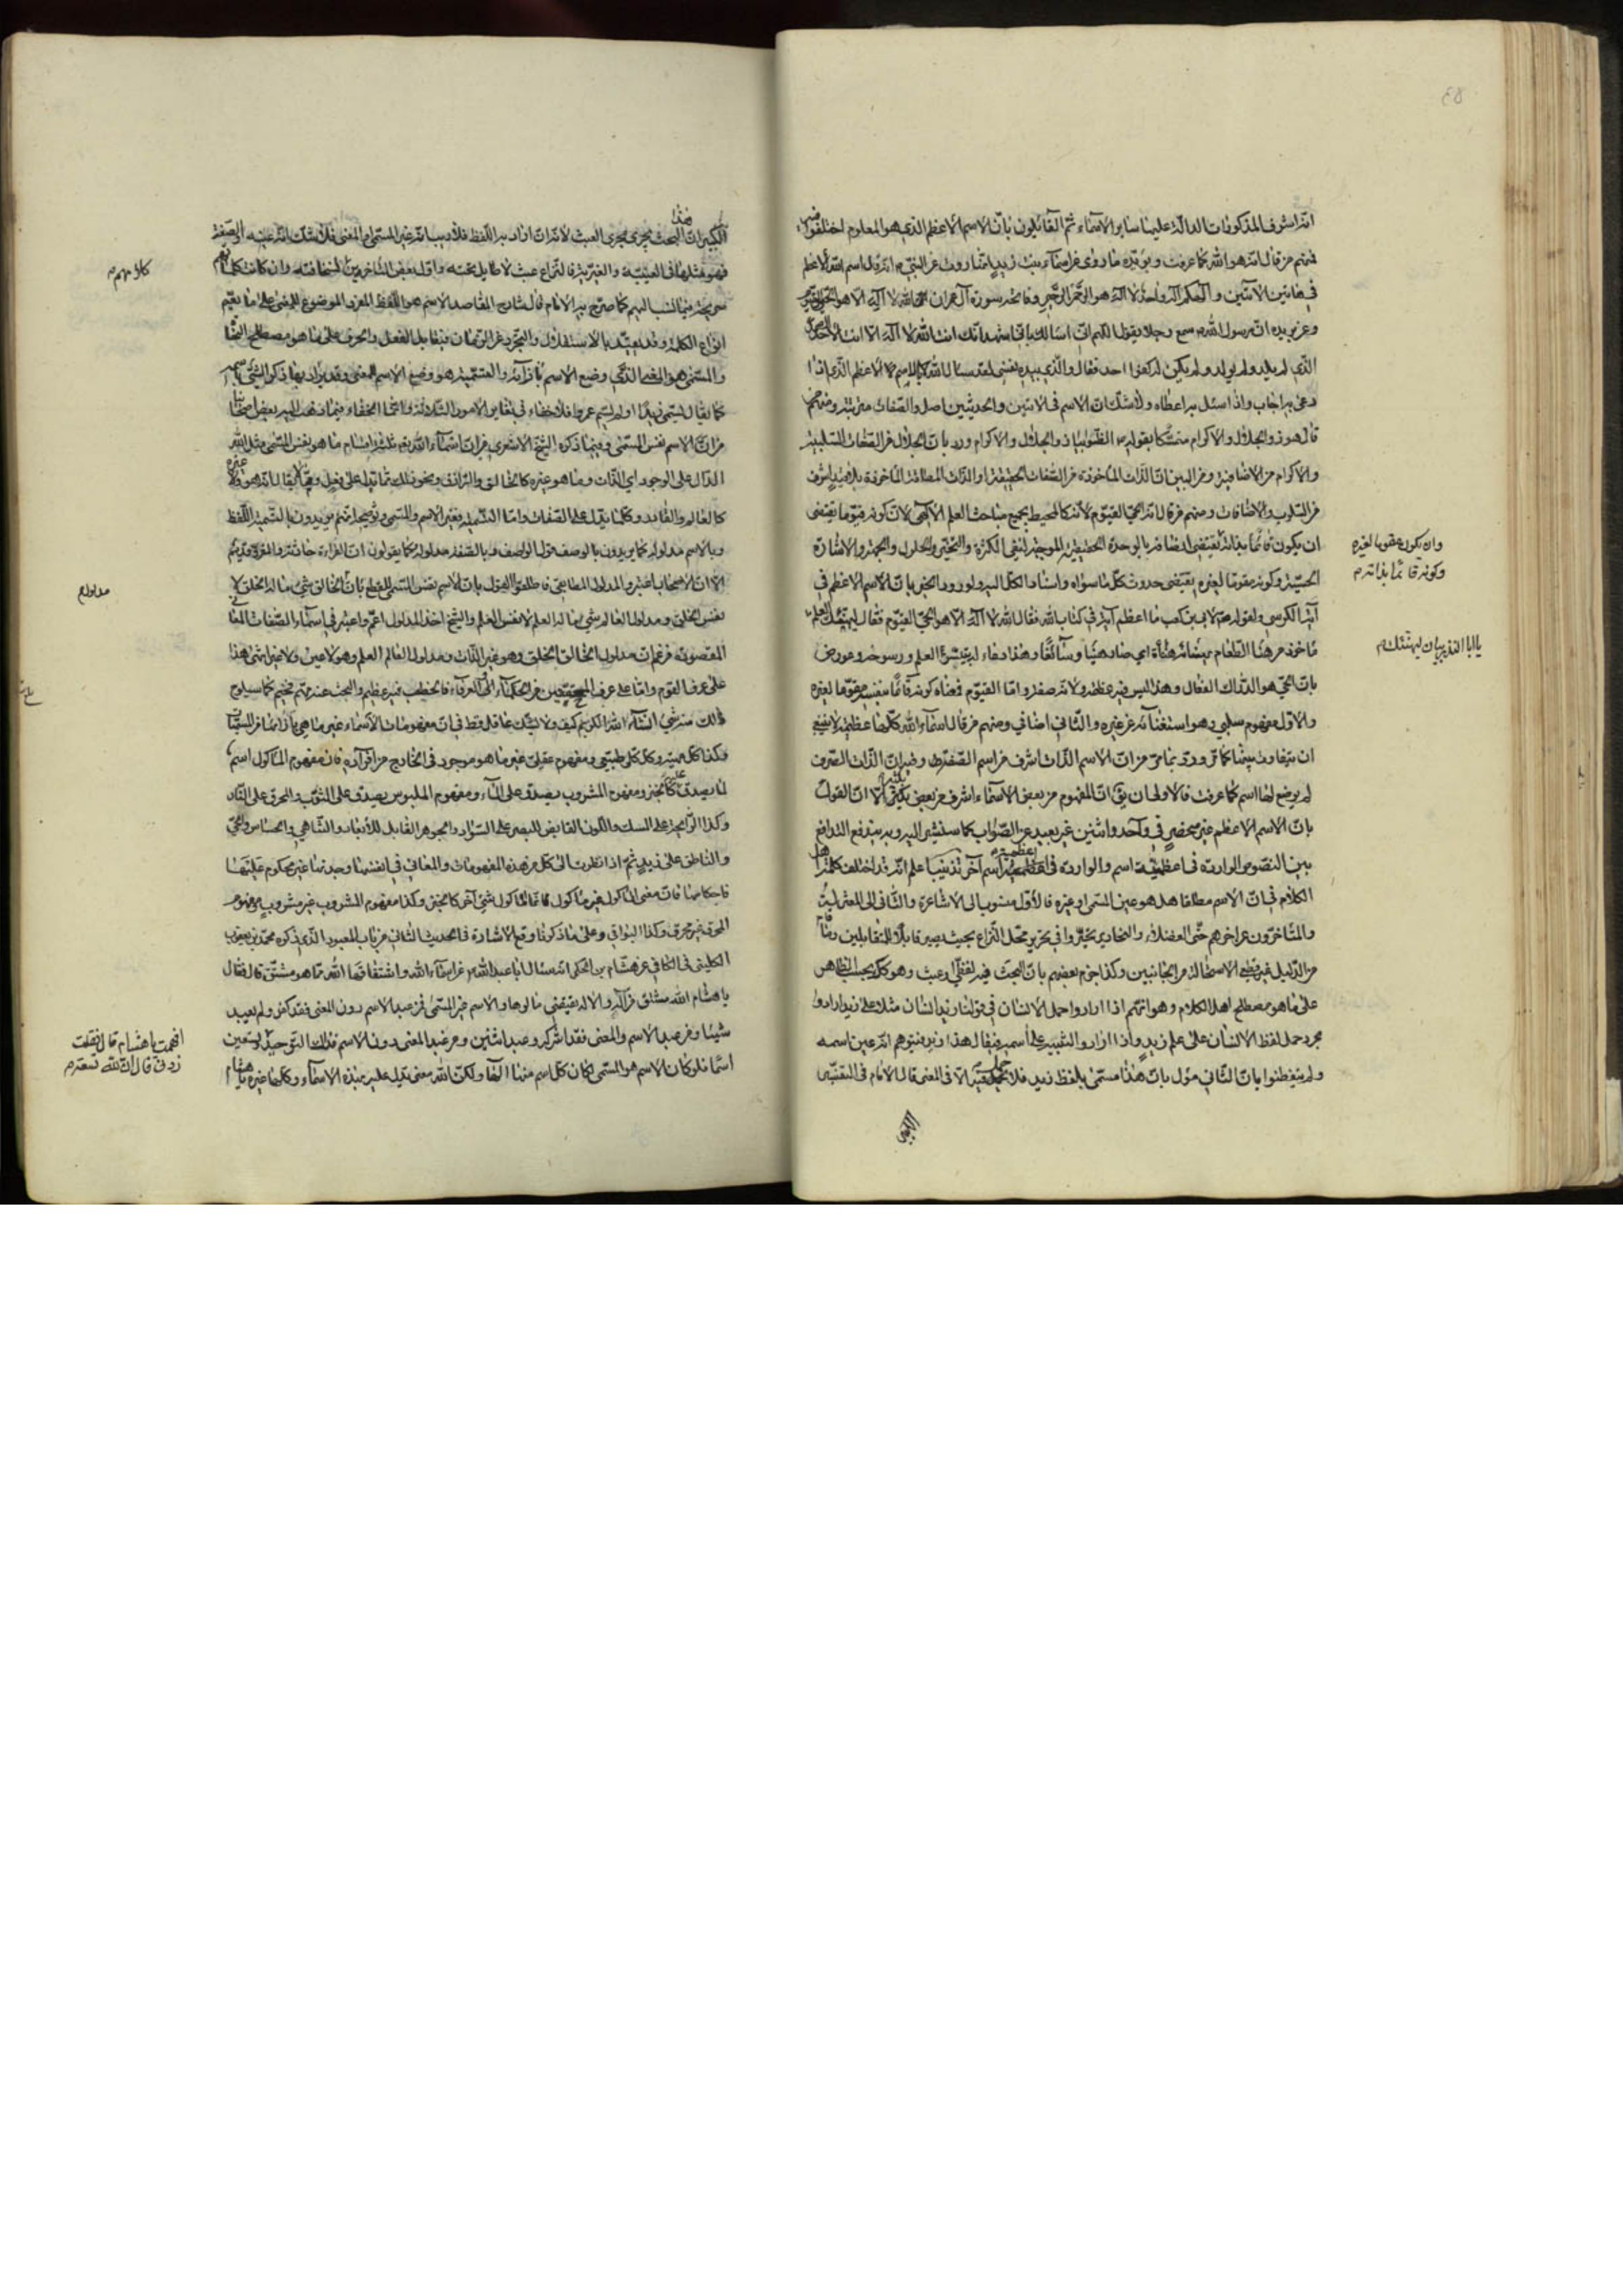 انه اشرف المذكورات الدالة عليها ساير الاسماء ثم القائلون بان الاسم الاعظم الذي هو المعلوم اختلفوا فيه
فمنهم من قال انه هو الله كما عرفت ويؤيده ما روى عن اسماء بنت زيد انها روت عن النبي انه قال اسم الله الاعظم
في هاتين الآيتين والهكم اله واحد لا اله الا هو الرحمن الرحيم وفاتحة سورة آل عمران الم الله لا اله الا هو الحي القيوم
وعن بريده ان رسول الله سمع رجلا يقول اللهم اني اسالك باني اشهد انك انت الله لا اله الا انت الاحد الصمد
الذي لم يلد ولم يولد ولم يكن له كفوا احد فقال والذي بيده نفسي لقد سال الله بالاسم الاعظم الذي اذا
دعى به اجاب واذا سئل به اعطاه ولا شك ان الاسم في الآيتين والحديثين اصل والصفات مترتبة ومنهم من
قال هو ذو الجلال والاكرام متمسكا بقوله الظوا بياذ والجلال والاكرام ورد بان الجلال من الصفات السلبية
والاكرام من الاضافية ومن البين ان الذات الماخوذة من الصفات الحقيقية او الذات المطلقة الماخوذة بلا قيد اشرف
من السلوب والاضافات ومنهم من قال انه الحي القيوم لانه كالمحيط بجميع مباحث العلم الالهي لان كونه قيوما يقتضى
ان يكون قائما بذاته يقتضى اتصافه بالوحدة الحقيقية الموجبة لنفى الكثرة والتحيز والحلول والجهة والاشارة
الحسية وكونه مقوما لغيره يقتضى حدوث كل ما سواه واسناد الكل اليه ولورود الخبر بان الاسم الاعظم في
آية الكرسي ولقوله لابي بن كعب ما اعظم آية في كتاب الله فقال الله لا اله الا هو الحي القيوم فقال ليهنئك العلم
ماخوذ من هنأ الطعام اي صار هنيئا وسائغا وهذا دعاء له بتيسر العلم ورسوخه وعورض
بان الحي هو الدراك الفعال وهذا ليس فيه عظمة ولانه صفة واما القيوم فمعناه كونه قائما بنفسه مقوما لغيره
والاول مفهوم سلبي وهو استغنائه عن غيره والثاني اضافي ومنهم من قال اسماء الله كلها عظيمة لا ينبغي
ان يتفاوت بينها كما مر ورد بما مر من ان الاسم الذات اشرف من اسم الصفة وفيه ان الذات الصرف
لم يوضع لها اسم كما عرفت فالاولى ان يق ان المفهوم من بعض الاسماء اشرف من بعض الا ان القول
بان الاسم الاعظم غير منحصر في واحد واثنين غير بعيد عن الصواب كما سنشير اليه وبه يندفع التدافع
بين النصوص الواردة في اعظمية اسم والواردة في اعظمية اسم آخر تذنيب اعلم انه قد اختلف كلمة اهل
الكلام في ان الاسم مطلقا هل هو عين المسمى او غيره فالاول منسوب الى الاشاعرة والثاني الى المعتزلة
والمتاخرون عن اخرهم حتى الفضلاء والنحارير تحيروا في تحرير محل النزاع بحيث يصير قابلا للمتقابلين
من الدليل غير قطعي الاستحالة من الجانبين وكذا جزم بعضهم بان البحث فيه لفظي او عبث وهو كك بحسب الظاهر
على ما هو مصطلح اهل الكلام وهو انهم اذا ارادوا حمل الانسان في قولنا زيد انسان مثلا على زيد ارادوا
مجرد حمل لفظ الانسان على علم زيد واذا ارادوا التنبيه على اسمه فيقال هذا زيد فيتوهم انه عين اسمه
ولم يتفطنوا بان الثاني مؤل بان هذا مسمى بلفظ زيد فلا الا في المعنى قال الامام في التفسير
الكبير
وان يكون مقوما لغيره
وكونه قائما بذاته م
يا ابا المنذر بيان ليهنئك م
الكبير ان هذا البحث يجرى مجرى العبث لانه ان اراد به اللفظ فلا ريب انه غير المسمى او المعنى فلا شك انه عينه او الصفة
فهو مثلها في العينية والغيرية فالنزاع عبث لا طايل تحته واقول بعض المتاخرين لسخافته وان كانت
سر يحته فيما نسب اليهم كما صرح به الامام قال شارح المقاصد الاسم هو اللفظ المفرد الموضوع للمعنى على ما يعم
انواع الكلمة وقد يقيد بالاستقلال والتجرد عن الزمان فيقابل الفعل والحرف على ما هو مصطلح النحاة
والمسمى هو المعنى الذي وضع الاسم بازائه والتسمية هو وضع الاسم للمعنى وقد يراد بها ذكر الشيء باسمه
كما يقال يسمى زيدا ولم يسم عمروا فلا خفاء في تغاير الامور الثلاثة وانما الخفاء فيما ذهب اليه بعض اصحابنا
من ان الاسم نفس المسمى وفيما ذكره الشيخ الاشعري من ان اسماء الله تع ثلثة اقسام ما هو نفس المسمى مثل الله
الدال على الوجود اي الذات وما هو غيره كالخالق والرازق ونحو ذلك مما يدل على فعل وما لا يقال انه هو ولا غيره
كالعالم والقادر وكل ما يدل على الصفات واما التسمية فغير الاسم والمسمى وتوضيحه انهم يريدون بالتسمية اللفظ
وبالاسم مدلوله كما يريدون بالوصف قول الواصف وبالصفة مدلوله وكما يقولون ان القراءة حادثة والمقرو قديم
الا ان الاصحاب اعتبروا المدلول المطابقي فاطلقوا القول بان الاسم نفس المسمى للقطع بان الخالق شيء ما له الخلق لا
نفس الخلق ومدلول العالم شيء ما له العلم لا نفس العلم والشيخ اخذ المدلول اعم واعتبر في اسماء الصفات المعاني
المقصودة فزعم ان مدلول الخالق الخلق وهو غير الذات ومدلول العالم العلم وهو لا عين ولا غير انتهى هذا
على عرف القوم واما على عرف المحققين من الحكماء والعرفاء فالخطب فيه عظيم والبحث عنه مهم فخيم كما سيلوح
لك منه شيء انشاء الله الكريم كيف ولا يشك عاقل قط في ان مفهومات الاسماء غير ما هي بازائها من المسميات
وكذا كل مهية وكل كلي طبيعي ومفهوم عقلي غير ما هو موجود في الخارج من افراده فان مفهوم الماكول اسم
لما يصدق على كالخبز ومفهوم المشروب يصدق على الماء ومفهوم الملبوس يصدق على الثوب والمحرق على النار
وكذا الرايحة على المسك واللون القابض للبصر على السواد والجوهر القابل للابعاد والنامي والحساس والحي
والناطق على زيد ثم اذا نظرت الى كل من هذه المفهومات والمعاني في انفسها وجدتها غير محكوم عليها
باحكامها فان معنى الماكول غير ماكول انما الماكول شيء آخر كالخبز وكذا مفهوم المشروب غير مشروب ومفهوم
المحرق غير محرق وكذا البواقي وعلى ما ذكرنا وقع الاشارة في الحديث الثاني من باب المعبود الذي ذكره محمد بن يعقوب
الكليني في الكافي عن هشام بن الحكم انه سئال ابا عبد الله عن اسماء الله واشتقاقها الله مما هو مشتق قال فقال
يا هشام الله مشتق من اله والاله يقتضي مالوها والاسم غير المسمى فمن عبد الاسم دون المعنى فقد كفر ولم يعبد
شيئا ومن عبد الاسم والمعنى فقد اشرك وعبد اثنين ومن عبد المعنى دون الاسم فذلك التوحيد تسعين
اسما فلو كان الاسم هو المسمى لكان كل اسم منها الها ولكن الله معنى يدل عليه بهذه الاسماء وكلها غيره يا هشام
كلام
مدلول م
افهمت يا هشام قال فقلت
زدني قال ان لله تسعة م